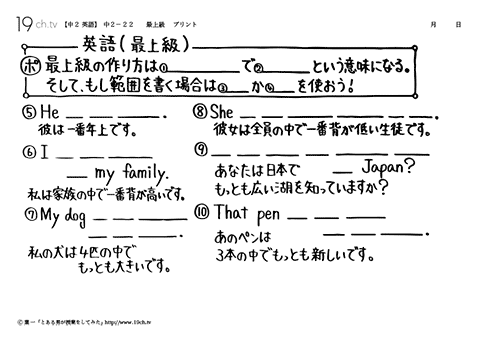 19 ch.tv 【中２ 英語】 中２－２２ 最上級 プリント 月 日
英語(最上級)
ポ 最上級の作り方は①________で②________という意味になる。
そして、もし範囲を書く場合は③____か④____を使おう!
⑤ He ___ ___ ___.
彼は一番年上です。
⑥ I ___ ___ ___
___ my family.
私は家族の中で一番背が高いです。
⑦ My dog ___ ___ ___
___ ___ ___.
私の犬は4匹の中で
もっとも大きいです。
⑧ She ___ ___ ___ ___ ___ ___ ___ ___.
彼女は全員の中で一番背が低い生徒です。
⑨ ___ ___ ___ ___ ___ ___
___ Japan?
あなたは日本で
もっとも広い湖を知っていますか?
⑩ That pen ___ ___
___ ___ ___ ___.
あのペンは
3本の中でもっとも新しいです。
© 葉一「とある男が授業をしてみた」http://www.19ch.tv